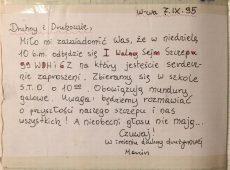 W-wa 7.IX.95
Druhny i Druhowie,
Miło mi zawiadomić Was, że w niedzielę
10 bm. odbędzie się I Walny Sejm Szczepu
99 WDH i GZ na który jesteście serdecz-
nie zaproszeni. Zbieramy się w szkole
S.T.O. o 10:00. Obowiązują mundury
galowe. Uwaga! będziemy rozmawiać
o przyszłości naszego szczepu i nas
wszystkich! A nieobecni głosu nie mają...
Czuwaj!
w imieniu drużyny
Marcin